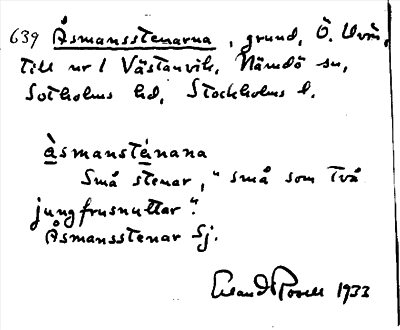 639 Åsmansstenarna, grund, Ö. Uvön,
till nr 1 Västanvik, Nämdö sn,
Sotholms hd, Stockholms l.
àsmanstánana
Små stenar, "små som två
jungfrusnuttar".
Åsmansstenar Sj.
Erland Rosell 1933